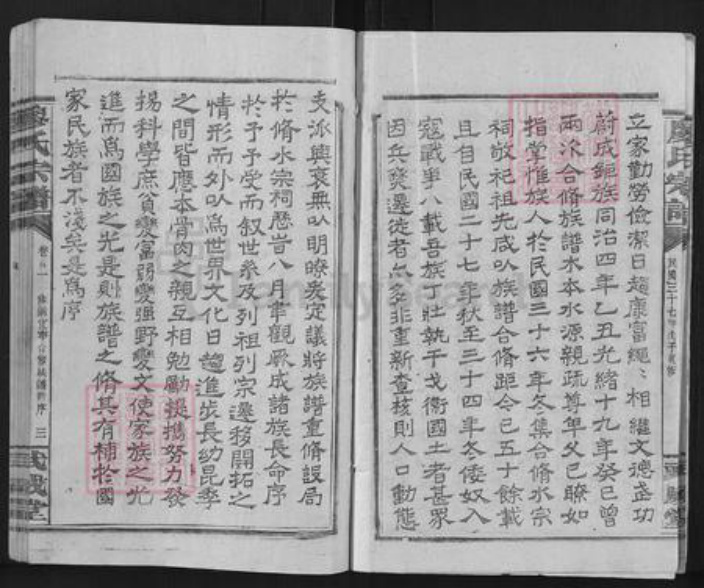 立家勤勞儉潔日趨康富繩、相繼文德武功
蔚成鉅族同治四年乙丑光緒十九年癸巳曾
兩次合脩族譜木本水源親疏尊卑久已瞭如
指掌惟族人於民國三十六年冬集合脩水宗
祠敬祀祖先咸以族譜合脩距今已五十餘載
且自民國二十七年秋至三十四年冬倭奴入
寇戰爭八載吾族丁壯執干戈衛國土者甚眾
因兵燹遷徙者亦多非重新查核則人口動態
支派興衰無以明瞭爰定議將族譜重脩設局
於脩水宗祠歷時八月聿觀厥成諸族長命序
於予予受而叙世系及列祖列宗遷移開拓之
情形而外以為世界文化日趨進步長幼昆季
之間皆應本骨肉之親互相勉勵提攜努力發
揚科學庶貧變富弱變強野變文使家族之光
進而為國族之光是則族譜之脩其有補於國
家民族者不淺矣是為序
廖氏宗譜
民國三十七年戊子
廖氏宗譜
卷之一
三
武威堂